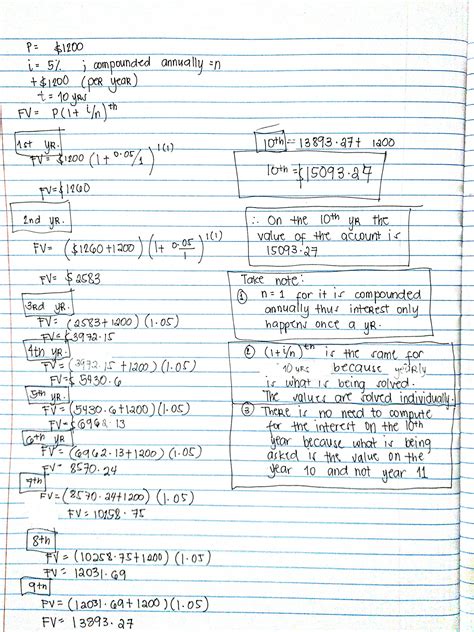 P= $1200
i = 5% ; compounded annually = n
+ $1200 (per year)
t = 10 yrs
FV= P(1+ i/n)^tn
1st yr.
FV= $1200 (1+ 0.05/1)^1(1)
FV= $1260
2nd yr.
FV= ($1260+1200) (1+ 0.05/1)^1(1)
FV= $2583
3rd yr.
FV= (2583+1200)(1.05)
FV=$3972.15
4th yr.
FV= (3972.15+1200)(1.05)
FV=$5430.6
5th yr.
FV= (5430.6+1200)(1.05)
FV=$6962.13
6th yr
FV= (6962.13+1200)(1.05)
FV= 8570.24
7th
FV=(8570.24+1200)(1.05)
FV= 10258.75
8th
FV= (10258.75+1200)(1.05)
FV= 12031.69
9th
FV= (12031.69+1200)(1.05)
FV= 13893.27
10th = 13893.27+ 1200
10th=$15093.27
∴ On the 10th yr the
value of the account is
15093.27
Take note:
① n=1 for it is compounded
annually thus interest only
happens once a yr.
② (1+i/n)^tn is the same for
10 yrs because yearly
is what is being solved.
The values are solved individually.
③ There is no need to compute
for the interest on the 10th
year because what is being
asked is the value on the
year 10 and not year 11